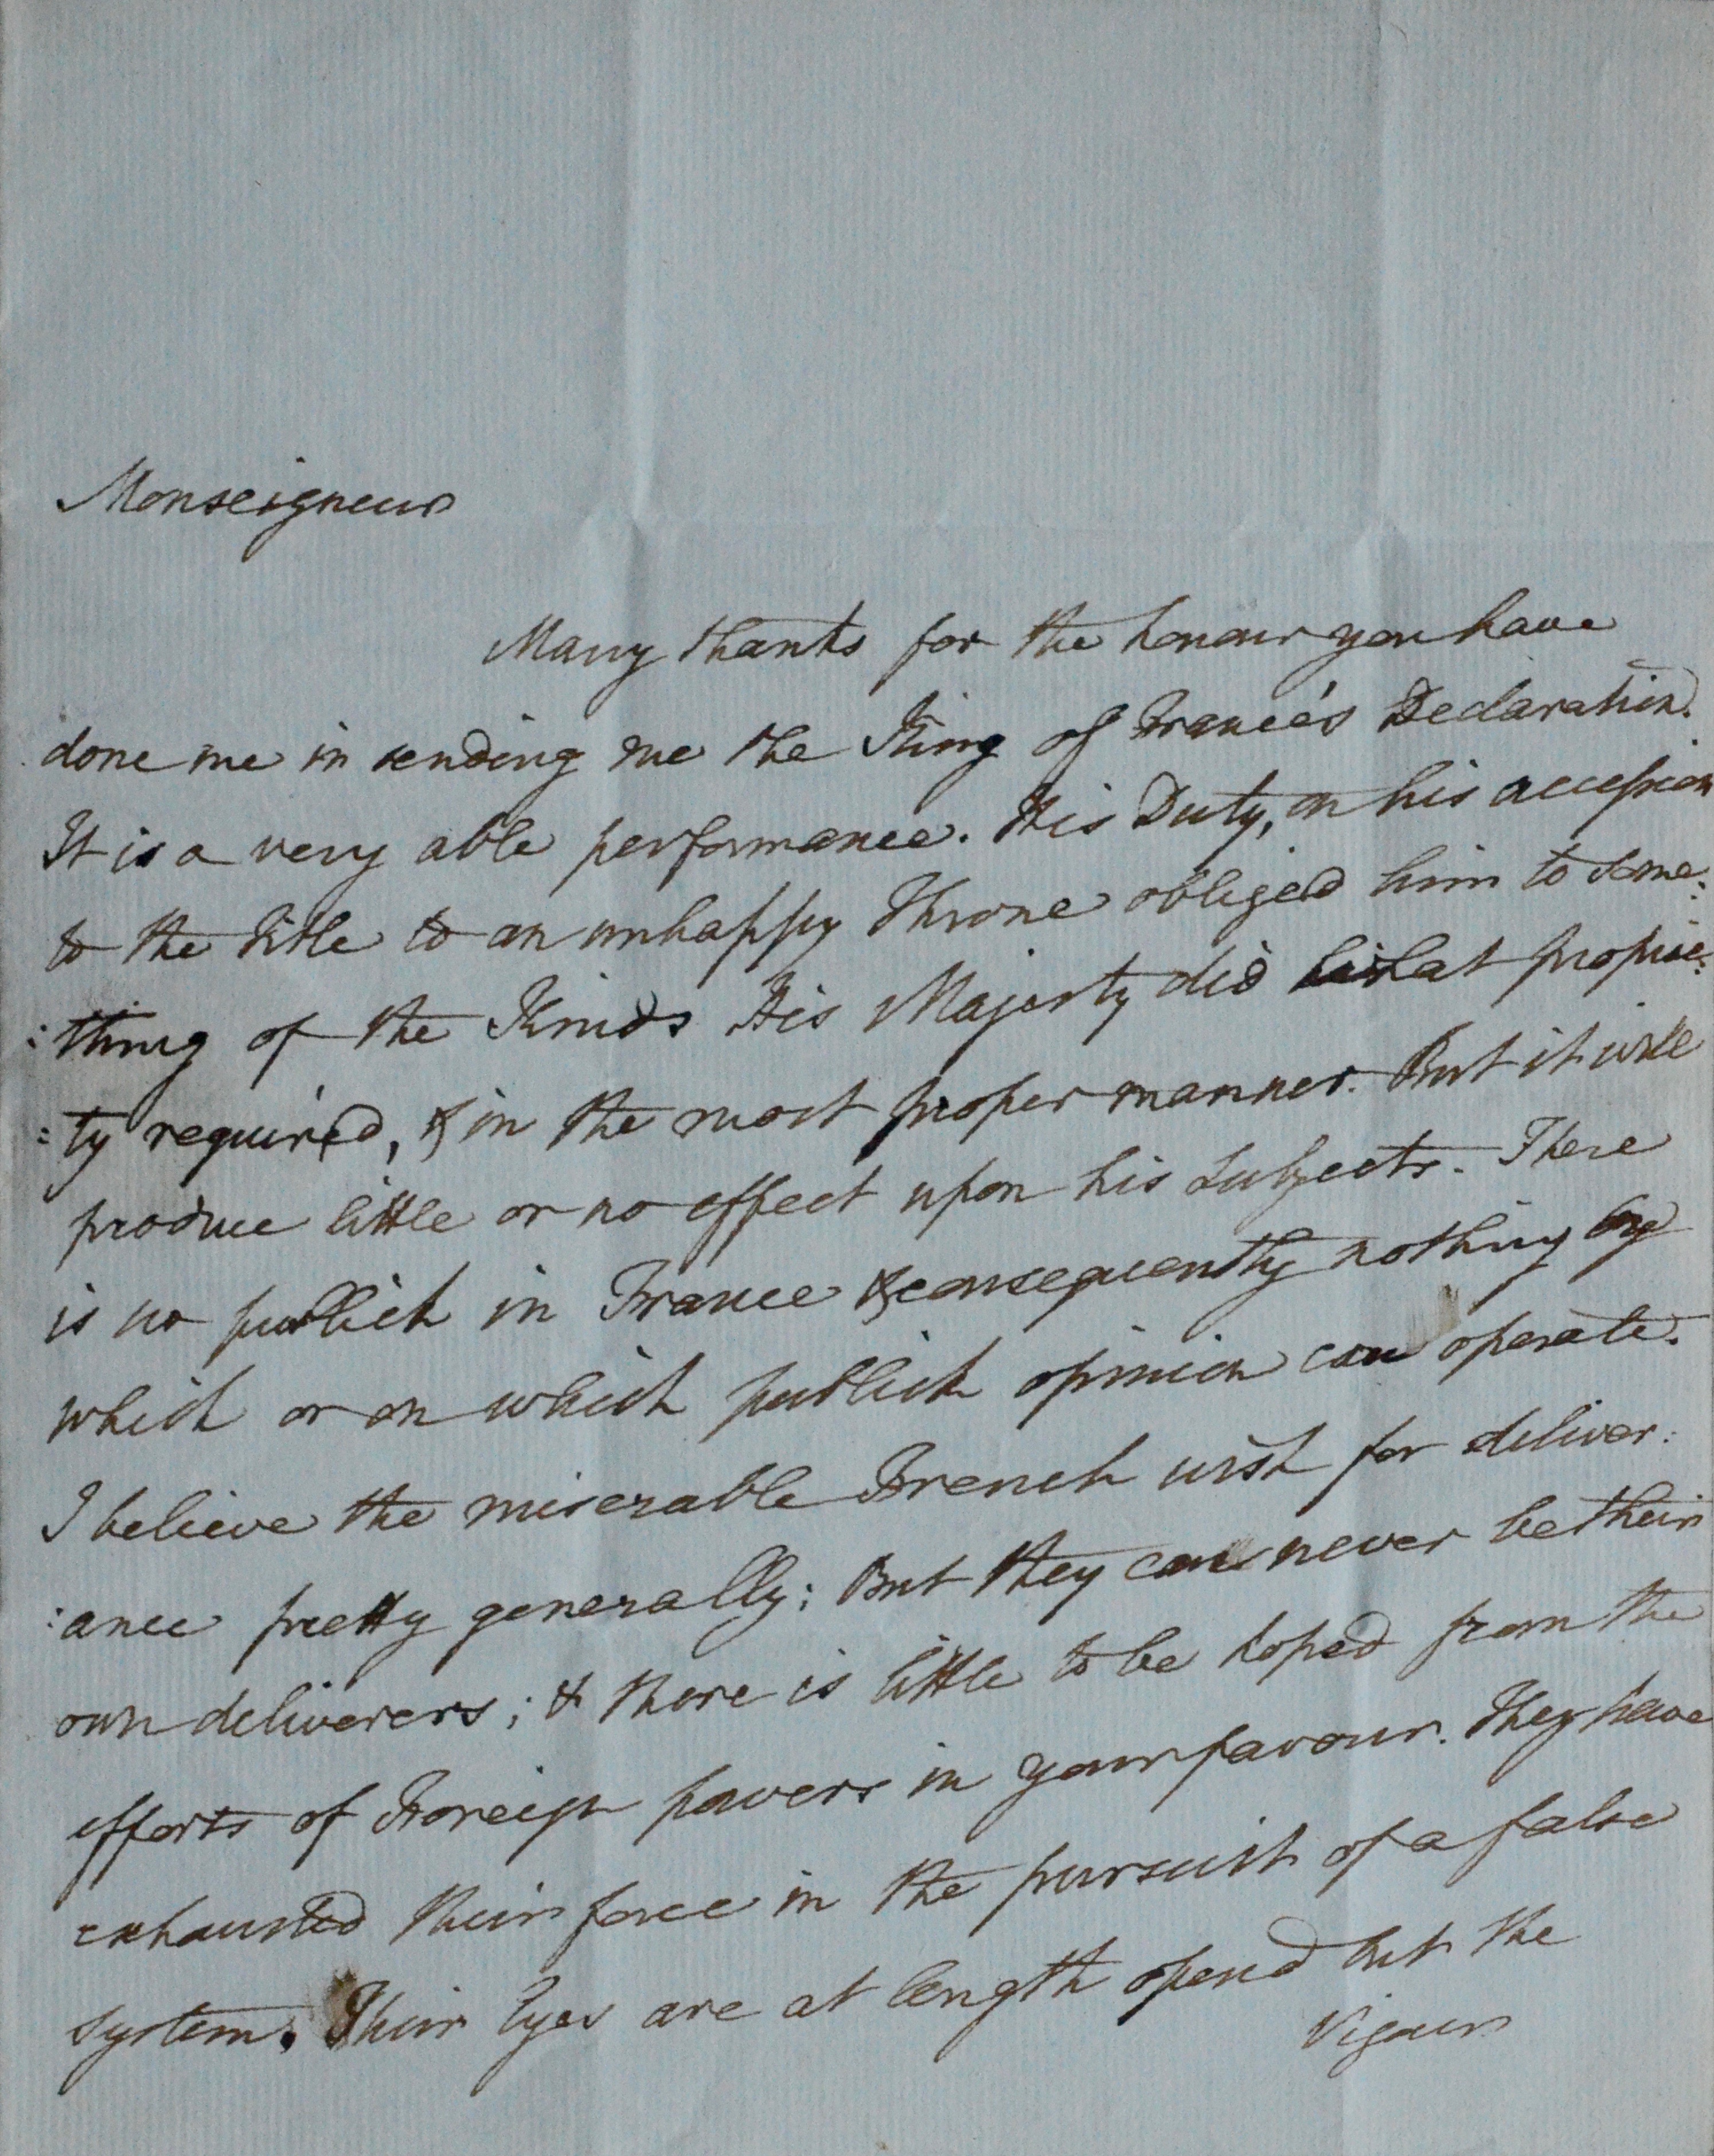 Monseigneur
Many thanks for the honour you have
done me in sending me the King of France's Declaration.
It is a very able performance. His Duty, on his accession
to the title to an unhappy Throne obliged him to some:
:thing of the Kind. His Majesty did what proprie:
:ty required, & in the most proper manner. But it will
produce little or no effect upon his Subjects. There
is no publick in France & consequently nothing by
which or on which publick opinion can operate.
I believe the miserable French wish for deliver:
:ance pretty generally; But they can never be their
own deliverers; & there is little to be hoped from the
efforts of Foreign powers in your favour. They have
exhausted their force in the pursuit of a false
system. Their Eyes are at length opend but the
vigour